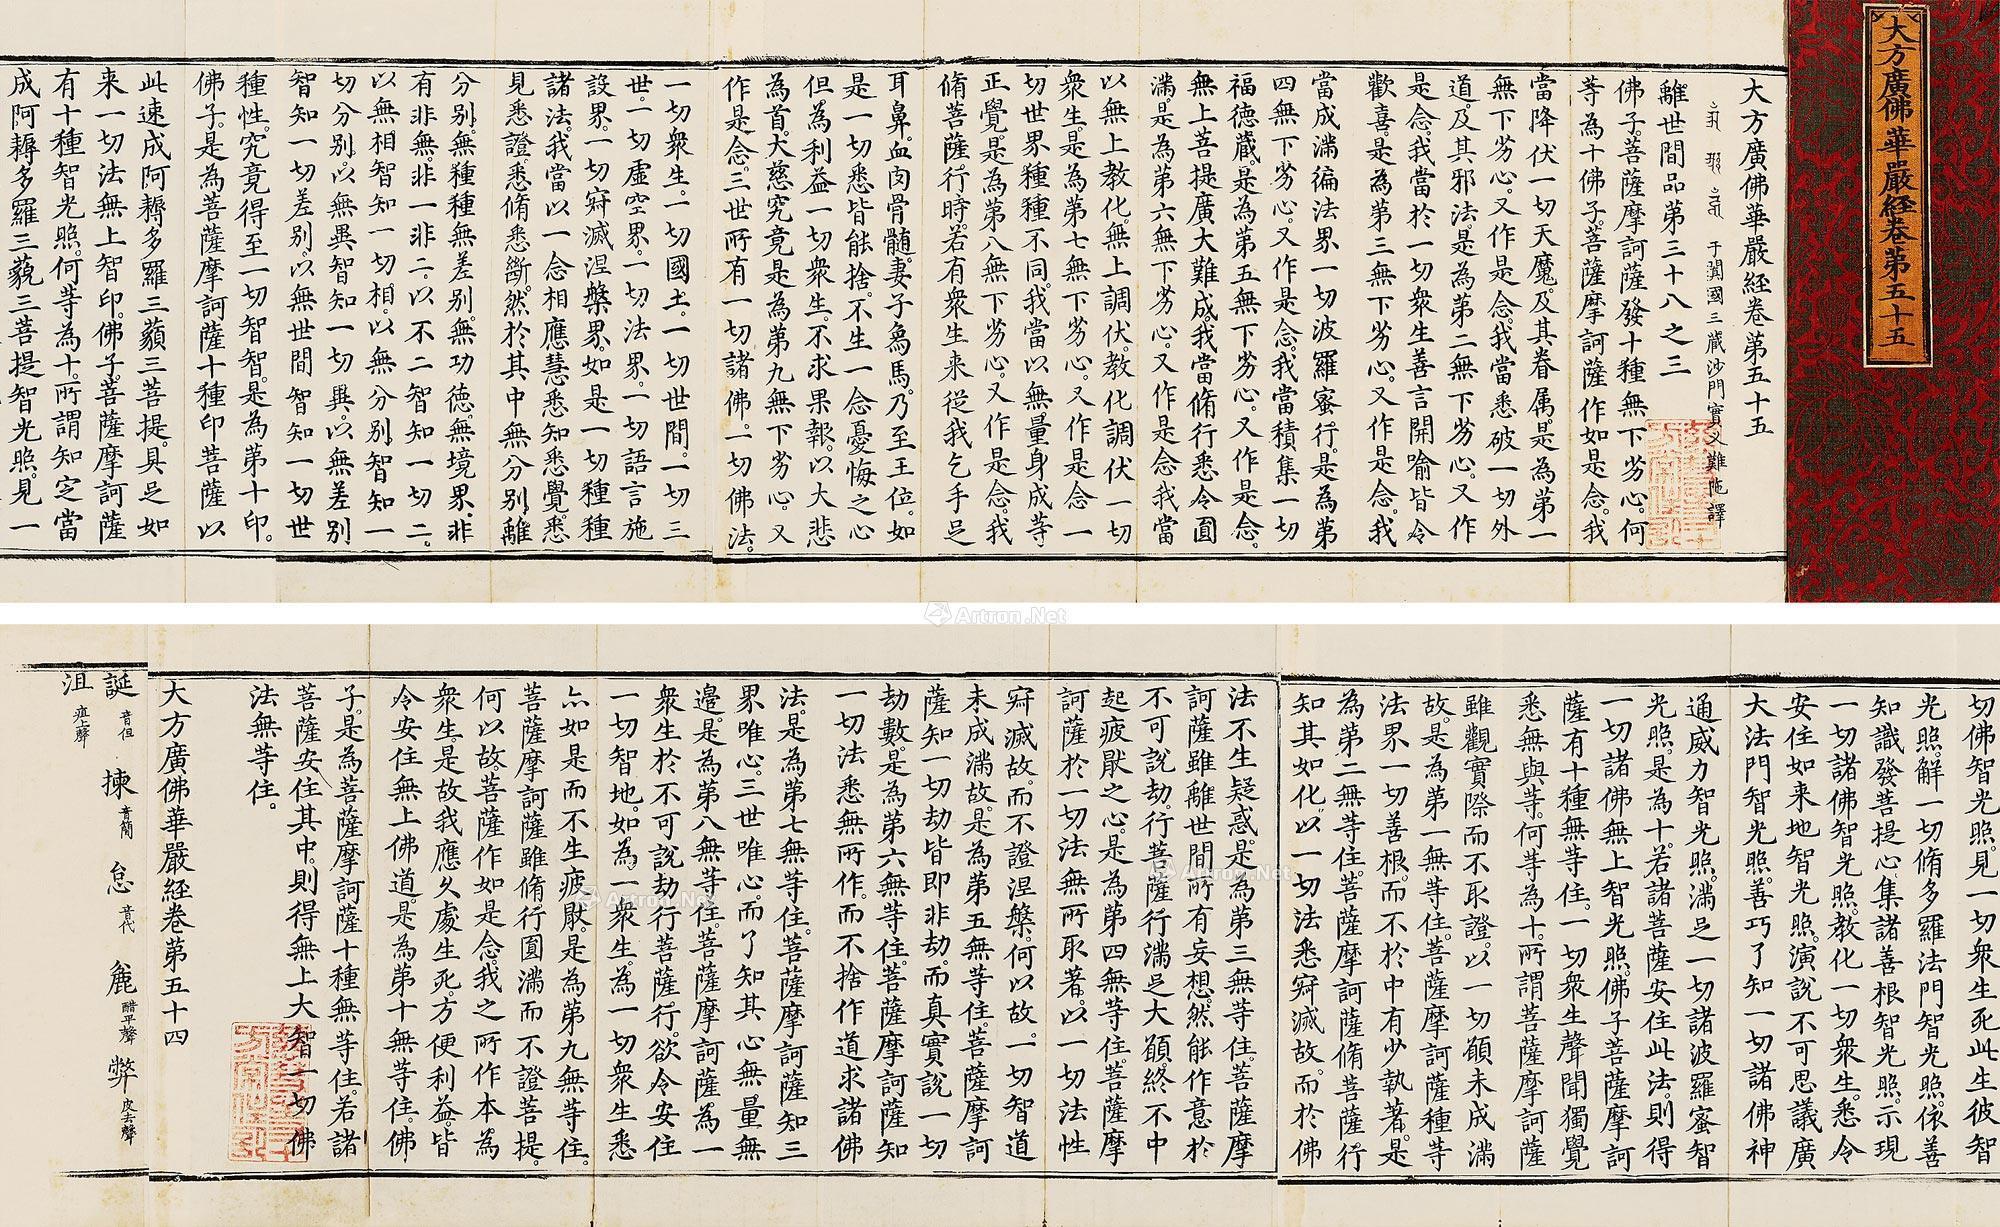 大方廣佛華嚴經卷第五十五
大方廣佛華嚴經卷第五十五
于闐國三藏沙門實叉難陁譯
離世間品第三十八之三
佛子菩薩摩訶薩發十種無下劣心何
等為十佛子菩薩摩訶薩作如是念我
當降伏一切天魔及其眷属是為第一
無下劣心又作是念我當悉破一切外
道及其邪法是為第二無下劣心又作
是念我當於一切衆生善言開喻皆令
歡喜是為第三無下劣心又作是念我
當成滿徧法界一切波羅蜜行是為第
四無下劣心又作是念我當積集一切
福德藏是為第五無下劣心又作是念
無上菩提廣大難成我當脩行悉令圓
滿是為第六無下劣心又作是念我當
以無上教化無上調伏教化調伏一切
衆生是為第七無下劣心又作是念一
切世界種種不同我當以無量身成等
正覺是為第八無下劣心又作是念我
脩菩薩行時若有衆生来從我乞手足
耳鼻血肉骨髓妻子烏馬乃至王位如
是一切悉皆能捨不生一念憂悔之心
但為利益一切衆生不求果報以大悲
為首大慈究竟是為第九無下劣心又
作是念三世所有一切諸佛一切佛法
一切衆生一切國土一切世間一切三
世一切虚空界一切法界一切語言施
設界一切寂滅涅槃界如是一切種種
諸法我當以一念相應慧悉知悉覺悉
見悉證悉脩悉斷然於其中無分别離
分别無種種無差别無功德無境界非
有非無非一非二以不二智知一切二
以無相智知一切相以無分别智知一
切分别以無異智知一切異以無差别
智知一切差别以無世間智知一切世
種性究竟得至一切智智是為第十印
佛子是為菩薩摩訶薩十種印菩薩以
此速成阿耨多羅三藐三菩提具足如
来一切法無上智印佛子菩薩摩訶薩
有十種智光照何等為十所謂知定當
成阿耨多羅三藐三菩提智光照見一
切佛智光照見一切衆生死此生彼智
光照解一切脩多羅法門智光照依善
知識發菩提心集諸善根智光照示現
一切諸佛智光照教化一切衆生悉令
安住如来地智光照演說不可思議廣
大法門智光照善巧了知一切諸佛神
通威力智光照滿足一切諸波羅蜜智
光照是為十若諸菩薩安住此法則得
一切諸佛無上智光照佛子菩薩摩訶
薩有十種無等住一切衆生聲聞獨覺
悉無與等何等為十所謂菩薩摩訶薩
雖觀實際而不取證以一切願未成滿
故是為第一無等住菩薩摩訶薩種等
法界一切善根而不於中有少執著是
為第二無等住菩薩摩訶薩脩菩薩行
知其如化以一切法悉寂滅故而於佛
法不生疑惑是為第三無等住菩薩摩
訶薩雖離世間所有妄想然能作意於
不可說劫行菩薩行滿足大願終不中
起疲厭之心是為第四無等住菩薩摩
訶薩於一切法無所取著以一切法性
寂滅故而不證涅槃何以故一切智道
未成滿故是為第五無等住菩薩摩訶
薩知一切劫皆即非劫而真實說一切
劫數是為第六無等住菩薩摩訶薩知
一切法悉無所作而不捨作道求諸佛
法是為第七無等住菩薩摩訶薩知三
界唯心三世唯心而了知其心無量無
邊是為第八無等住菩薩摩訶薩為一
衆生於不可說劫行菩薩行欲令安住
一切智地如為一衆生為一切衆生悉
亦如是而不生疲厭是為第九無等住
菩薩摩訶薩雖脩行圓滿而不證菩提
何以故菩薩作如是念我之所作本為
衆生是故我應久處生死方便利益皆
令安住無上佛道是為第十無等住佛
子是為菩薩摩訶薩十種無等住若諸
菩薩安住其中則得無上大智一切佛
法無等住
大方廣佛華嚴經卷第五十四
誕音但 揀音簡 怠音代 麁醋平聲 弊皮去聲
沮疽上聲
Artron.Net
Artron.Net
Artron.Net